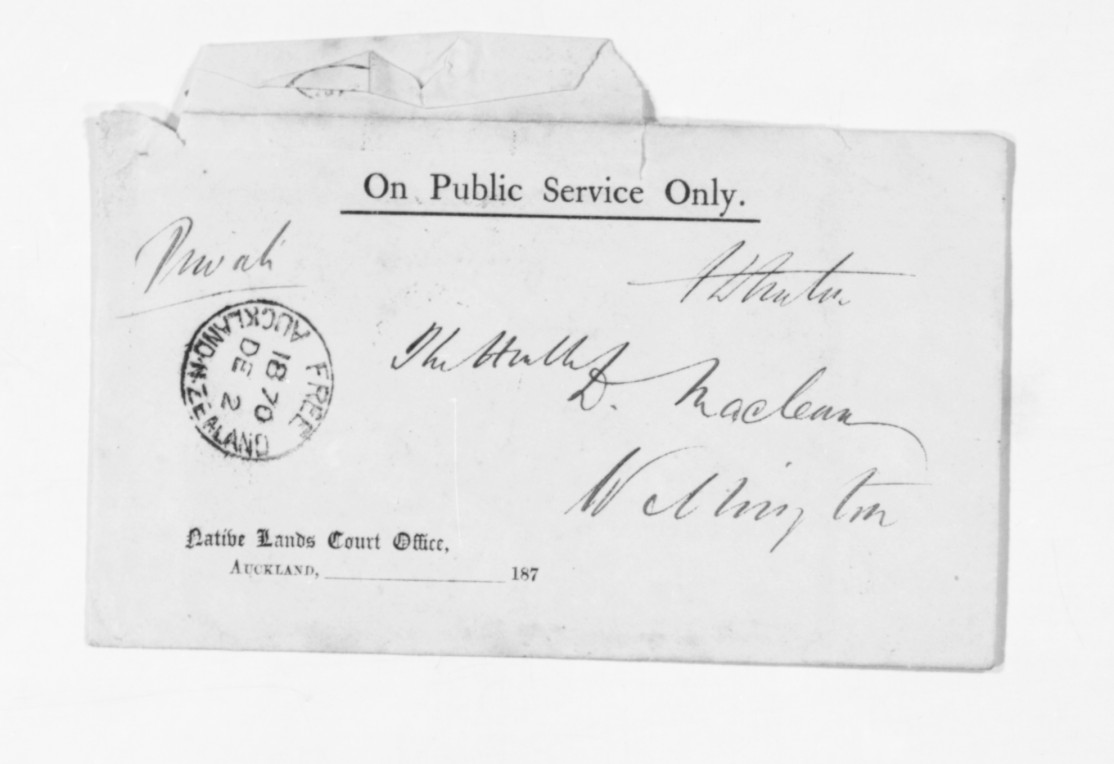 On Public Service Only.
Private
FREE
AUCKLAND·N·ZEALAND
DE 2
18 70
The Honble
D. Maclean
Wellington
Native Lands Court Office,
AUCKLAND, 187